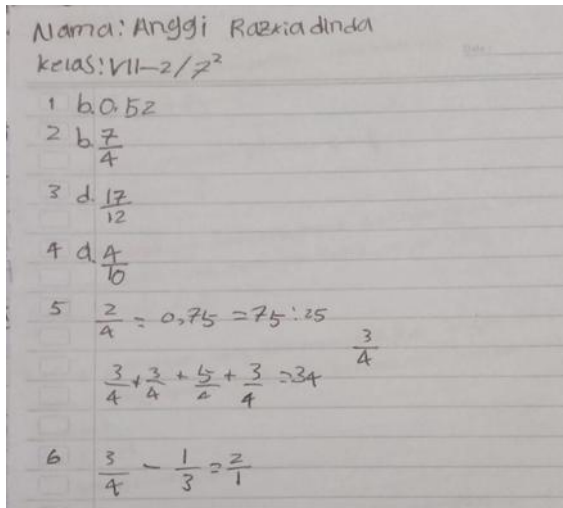 Nama: Anggi Razkia dinda
kelas: VII-2/7²
1 b. 0.52
2 b. 7/4
3 d. 17/12
4 d. 4/10
5 2/4 = 0,75 = 75:25
3/4
3/4 + 3/4 + 5/4 + 3/4 = 34
6 3/4 - 1/3 = 2/1